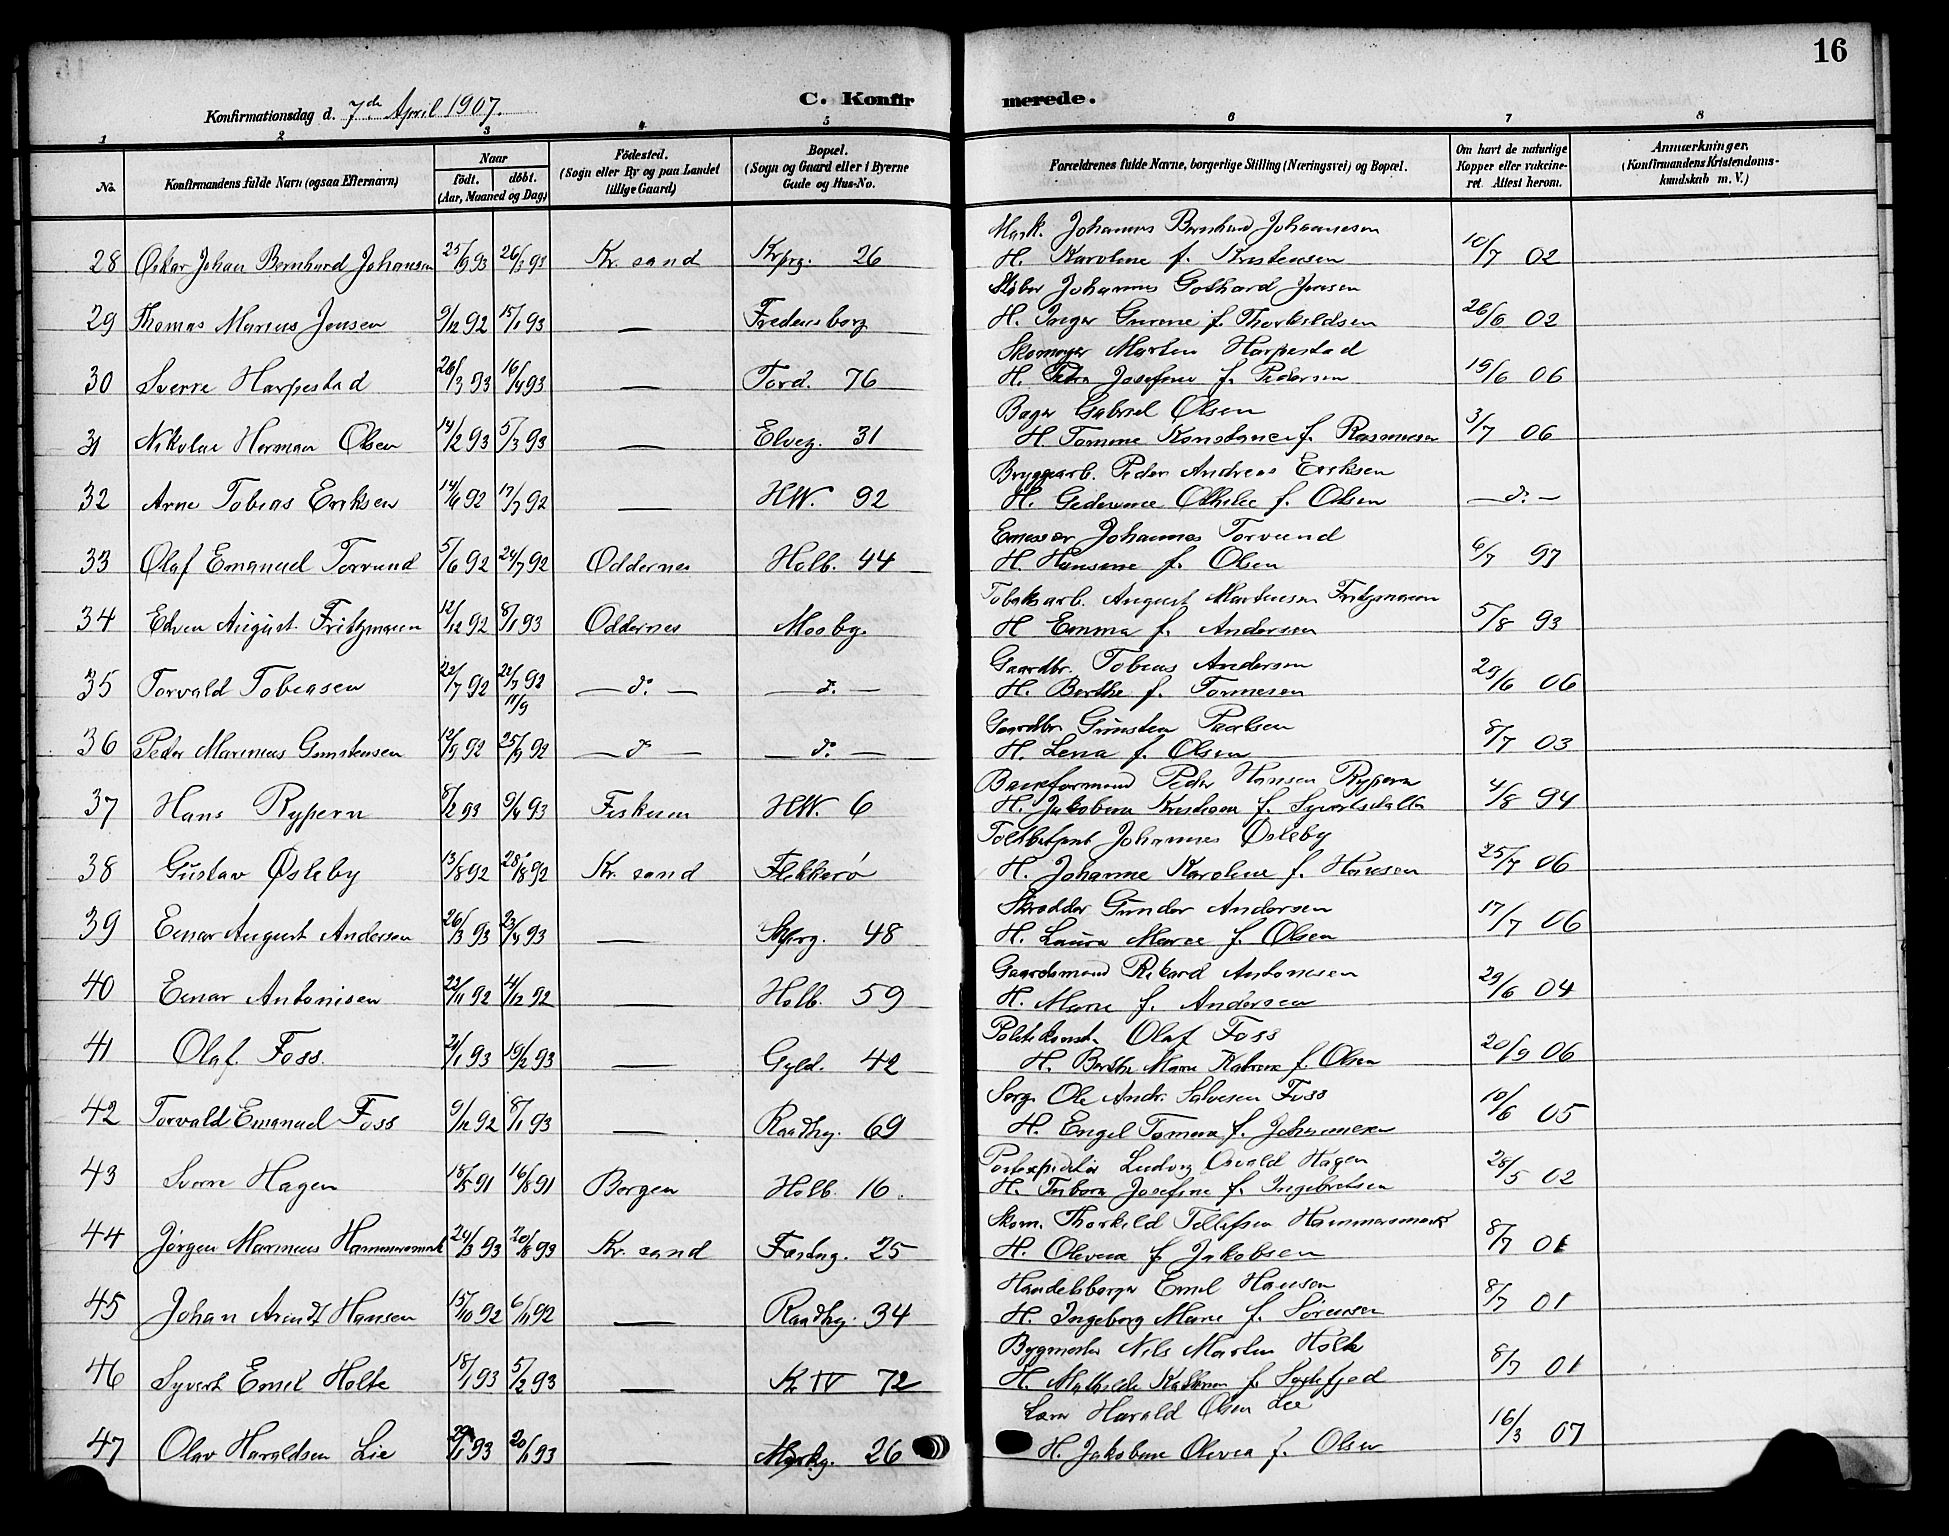 16
Konfirmationsdag d. 7de April 1907.
C. Konfirmerede.
1 2 3 4 5 6 7 8
No.
Konfirmandens fulde Navn (ogsaa Efternavn)
Naar
født. døbt.
(Aar, Maaned og Dag)
Fødested.
(Sogn eller By og paa Landet
tillige Gaard)
Bopæl.
(Sogn og Gaard eller i Byerne
Gade og Hus-No.
Forældrenes fulde Navne, borgerlige Stilling (Næringsvei) og Bopæl.
Om havt de naturlige
Kopper eller vaccine-
ret. Attest herom.
Anmærkninger.
(Konfirmandens Kristendoms-
kundskab m. V.)
Johannes Bernhard Johannesen
28 Oskar Johan Bernhard Johansen Kr. sand 26 H. Karoline f. Kristensen 10/7 02
Johannes Gothard Jensen
29 Thomas Marius Jensen 9/12 92 15/1 93 — Fredensborg H. Inger f. Thorkildsen 26/6 02
Skomager Martin Harpestad
30 Sverre Harpestad 26/3 93 16/4 93 — Tord. 76 H. Petra Josefine f. Pedersen 19/6 06
Bager Gabriel Olsen
31 Nikolai Herman Olsen 14/2 93 5/3 93 — Elveg. 31 H. Tomine Konstance f. Rasmussen 3/7 06
Bryggearb. Peder Andreas Eriksen
32 Arne Tobias Eriksen 17/7 92 — H.W. 92 H. Othilie f. Olsen — d. —
Johannes Torvund
33 Olaf Emanuel Torvund 5/6 92 24/7 92 Oddernes Holb. 44 H. Hansine f. Olsen 6/7 97
Tobaksarb. August Martinsen Fritzmann
34 Edvin August Fritzmann 12/12 92 8/1 93 Oddernes Mosby. H. Emma f. Andersen 5/8 93
Gaardbr. Tobias Andersen
35 Torvald Tobiasen 22/7 92 — d. — — d. — H. Berthe f. Tormesen 29/6 06
11/9
Gaardbr. Gunsten Paulsen
36 Peder Marinius Gunstensen 12/9 92 25/9 92 — d. — — d. — H. Lena f. Olsen 8/7 03
Baneformand Peder Hansen Rypern
37 Hans Rypern 8/2 93 9/4 93 Fiskum H.W. 6 H. Jakobine Kristiane f. 4/8 94
Toldbetjent Johannes Østeby
38 Gustav Østeby 13/8 92 28/8 92 Kr. sand Flekkerø H. Johanne Karoline f. Hansen 25/7 06
Skrædder Gunder Andersen
39 Einar August Andersen 26/3 93 23/4 93 — 48 H. Laura Marie f. Olsen 17/7 06
Gaardsmand Rikard Antonisen
40 Einar Antonisen 22/11 92 4/12 92 — Holb. 59 H. Marie f. Andersen 29/6 04
Politikonst. Olaf Foss
41 Olaf Foss. 2/1 93 19/2 93 — Gyld. 42 H. Berthe Marie Katrine f. Olsen 20/9 06
Ole Andr. Salvesen Foss
42 Torvald Emanuel Foss 9/12 92 8/1 93 — Raadhg. 69 H. Engel Tomine f. Johannesen 10/6 05
Postexpeditør Ludvig Osvald Hagen
43 Sverre Hagen 18/5 91 16/8 91 Bergen Holb. 16. H. Josefine f. Ingebretsen 28/5 02
Skom. Thorkild Tellefsen Hammersmark
44 Jørgen Marinius Hammersmark 24/3 93 20/8 93 Kr. sand Fæstng. 25 H. Olevine f. Jakobsen 8/7 01
Handelsborger Emil Hansen
45 Johan Arndt Hansen 15/10 92 6/11 92 — Raadhg. 34 H. Ingeborg Marie f. Sørensen 8/7 01
Bygmester Nils Martin Holte
46 Syvert Emil Holte 18/1 93 5/2 93 — 72 H. Mathilde Kathrine f. 8/7 01
Lærer Harald Olsen Lie
47 Olav Haraldsen Lie 20/1 93 — Markg. 26 H. Jakobine Olevia f. Olsen 16/3 07